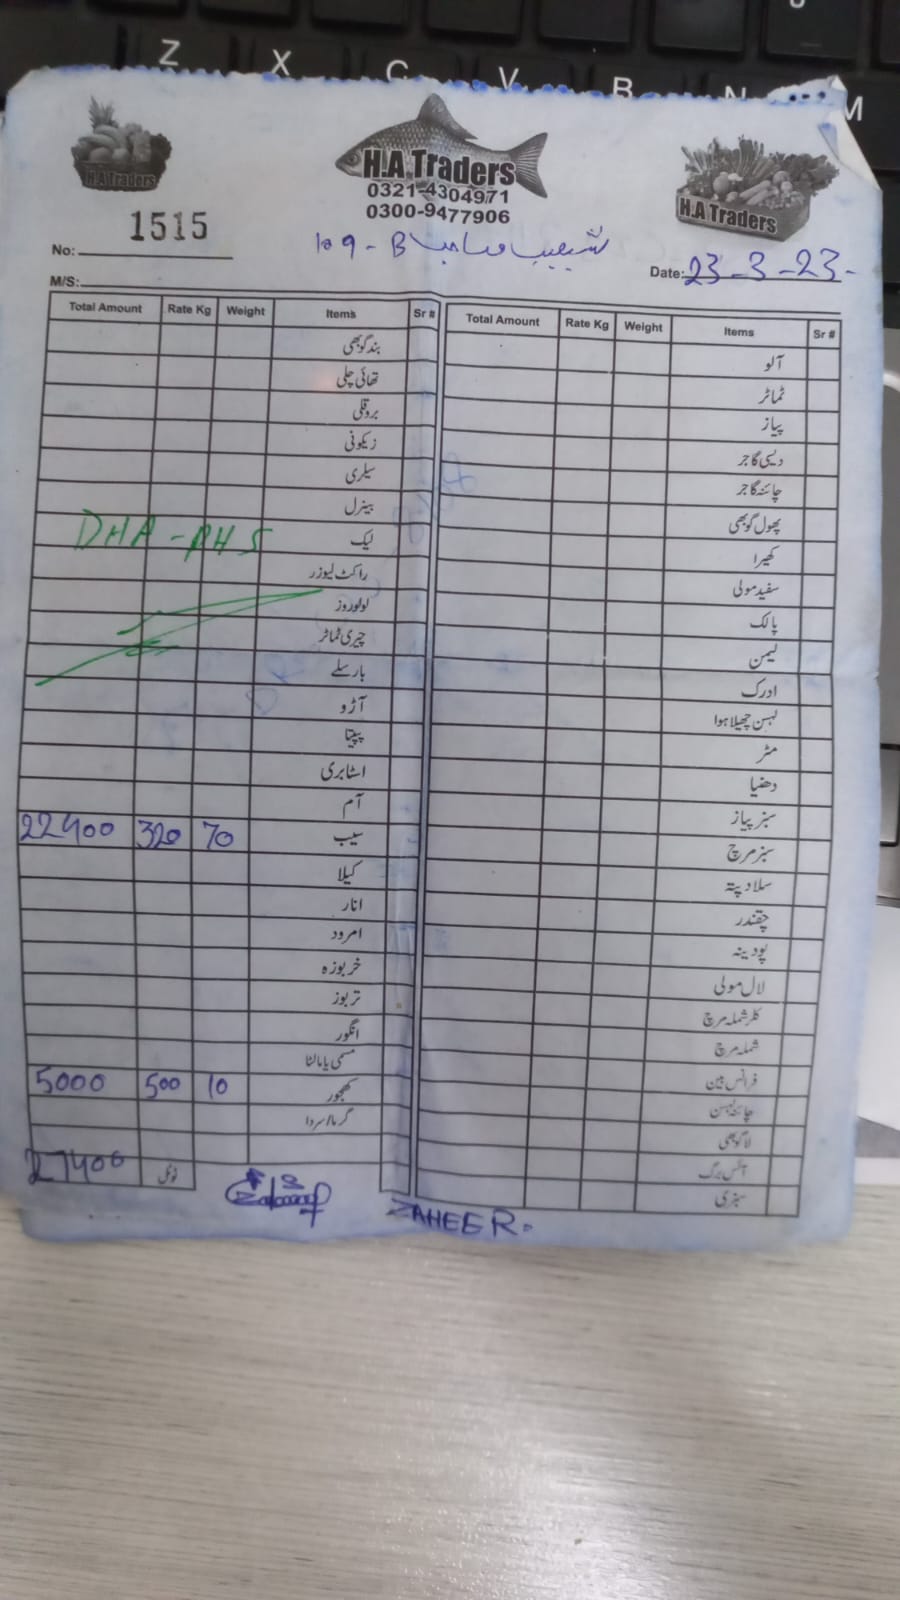 Z X C V B N M
H.A Traders
H.A Traders
H.A Traders
0321-4304971
0300-9477906
No: 1515
109 - B شعیب صاحب
Date: 23-3-23-
M/S:
Total Amount Rate Kg Weight Items Sr #
بند گوبھی
تھائی چلی
بروقلی
زیکونی
سیلری
بیزل
لیک
راکٹ لیوزر
لولوروز
چیری ٹماٹر
پارسلے
آڑو
پپیتا
اسٹابری
آم
سیب 70 320 22400
کیلا
انار
امرود
خربوزہ
تربوز
انگور
مسمی یا مالٹا
کھجور 10 500 5000
گرما/سردا
ٹوٹل 27400
DHA-PHS
Total Amount Rate Kg Weight Items Sr #
آلو
ٹماٹر
پیاز
دیسی گاجر
چائنہ گاجر
پھول گوبھی
کھیرا
سفید مولی
پالک
لیمن
ادرک
لہسن چھیلا ہوا
مٹر
دھنیا
سبز پیاز
سبز مرچ
سلاد پتہ
چقندر
پودینہ
لال مولی
کلر شملہ مرچ
شملہ مرچ
فرانس بین
چائنہ لہسن
لاگوبھی
آئس برگ
سبزی
ZAHEER.